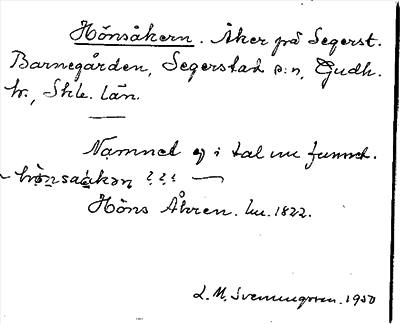 Hönsåkern. Åker på Segerst.
Barnegården, Segerstad s:n, Gudh.
hr., Skbg. län.
Namnet ej i tal nu funnet.
Höns Åkren. hu. 1822.
L. M. Svenungsson. 1950